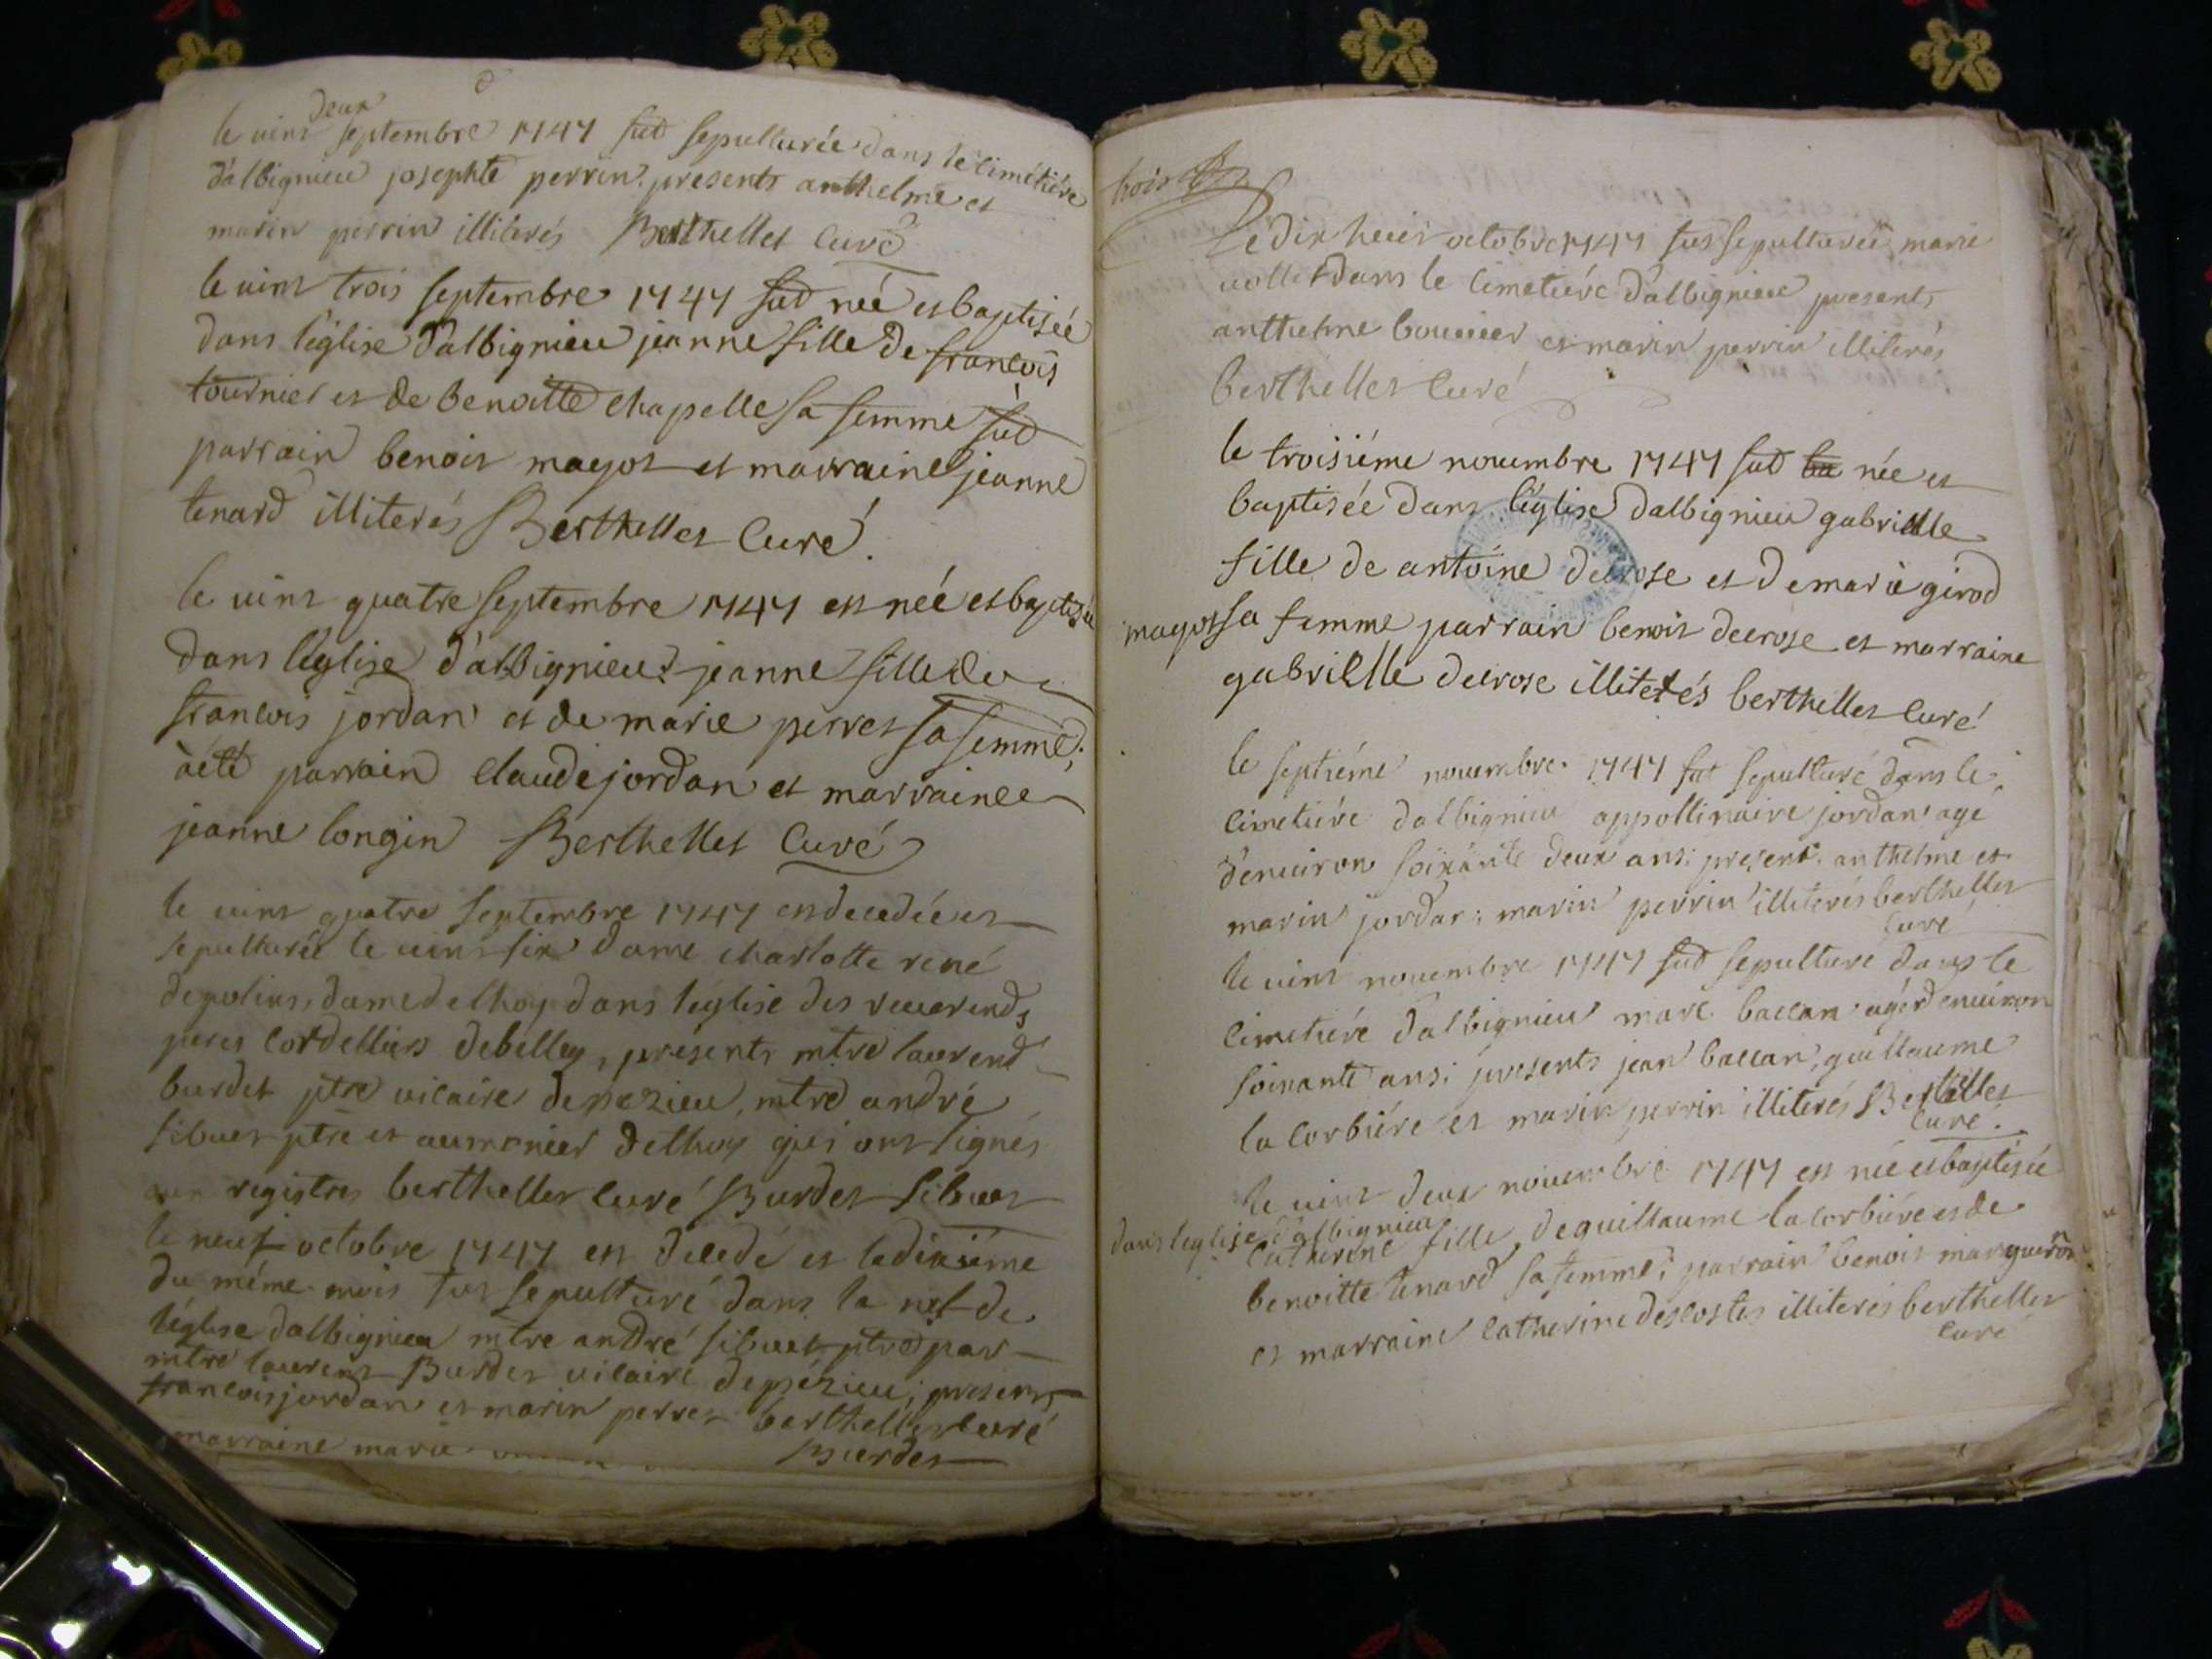 le vint deux septembre 1747 fut sepulturée dans le cimétiére
d'albignieu josephte perrin. presents anthelme et
marin perrin illiterés Berthellet Curé
le vint trois septembre 1747 fut neé et baptiseé
dans l'église d'albignieu jeanne fille de francois
tournier et de benoitte chapelle sa femme fut
parrain benoit magot et marraine jeanne
tenard illiterés Berthellet Curé.
le vint quatre septembre 1747 est neé et baptisée
dans l'église d'albignieu jeanne fille de
francois jordan et de marie perret sa femme;
àété parrain claude jordan et marraine
jeanne longin Berthellet Curé
le vint quatre septembre 1747 est decedée et
sepulturée le vint six dame charlotte rené
depolins, dame delhoy dans l'église des reverends
peres Cordelliers debelley, présents mtre laurend
burdet ptre vicaire depezieu, mtre andré
sibuet ptre et aumonier delhoy qui ont signés
aux registres berthellet curé Burdet Sibuet
le neuf octobre 1747 est decedé et ledixiéme
du méme mois fut sepulturé dans la nef de
l'église d'albignieu mtre andré sibuet ptre par
mtre laurent Burdet vicaire depézieu; presents
francois jordan et marin perret berthellet curé
Burdet
marraine marie
Le dix huit octobre 1747 fut sepulturée marie
vollet dans le Cimetiére d'albignieu presents
anthelme bouvier et marin perrin illiterés
berthellet Curé
le troisiéme novembre 1747 fut ba née et
baptisée dans l'église d'albignieu gabrielle
fille de antoine decrose et de marie girod
magot sa femme parrain benoit decrose et marraine
gabrielle decrose illiterés berthellet Curé
le septiéme novembre 1747 fut sepulturé dans le
Cimetiére d'albignieu appollinaire jordan agé
d'environ soixante deux ans; present anthelme et
marin jordan; marin perrin illiterés berthellet
Curé
le vint novembre 1747 fut sepulturé dans le
Cimetiére d'albignieu marc ballan agé d'environ
soixante ans; presents jean ballan, guillaume
la Corbiére et marin perrin illiterés Berthellet
Curé.
le vint deux novembre 1747 est neé et baptisée
dans l'eglise d'albignieu
Catherine fille de guillaume la Corbiére et de
benoitte tenard sa femme; parrain benoit margueron
et marraine Catherine descostes illiterés berthellet
Curé